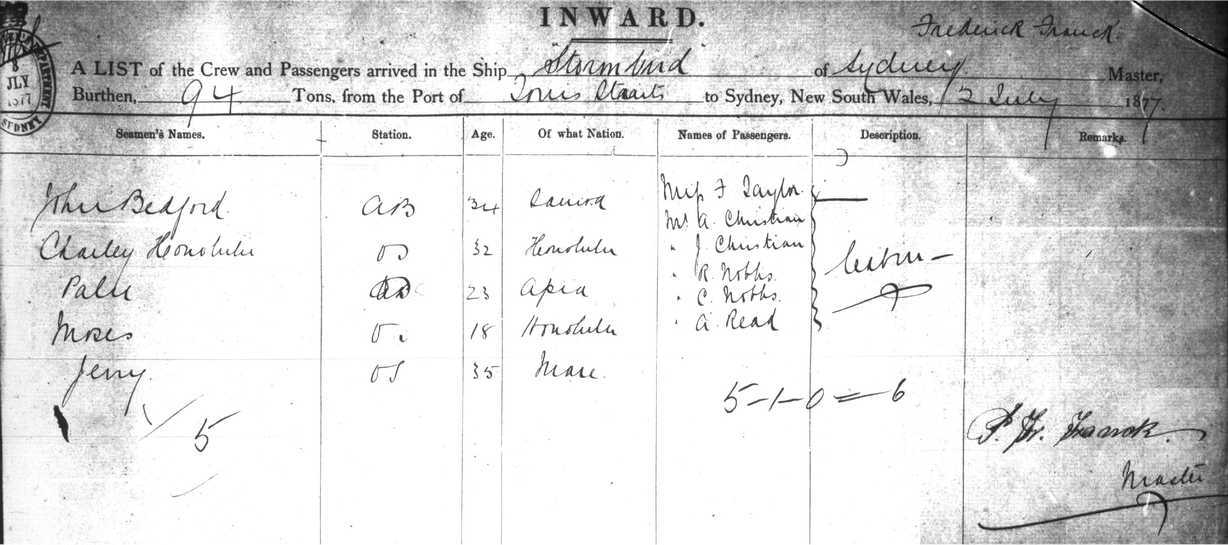 INWARD.
Frederick Franck.
A LIST of the Crew and Passengers arrived in the Ship Stormbird of Sydney Master,
Burthen, 94 Tons, from the Port of Torris Straits to Sydney, New South Wales, 2 July 1877.
JLY
1877
SYDNEY
Seamen's Names. Station. Age. Of what Nation. Names of Passengers. Description. Remarks.
John Bedford AB 34 Miss F Taylor
Mr A. Christian
Charley Honolulu OS 32 Honolulu " J Christian
" R Nobbs
Palu 23 Apia " C. Nobbs. Cabin
Moses 18 Honolulu " A Read
Jerry. OS 35 Mare.
5-1-0 = 6
5
Franck.
Master